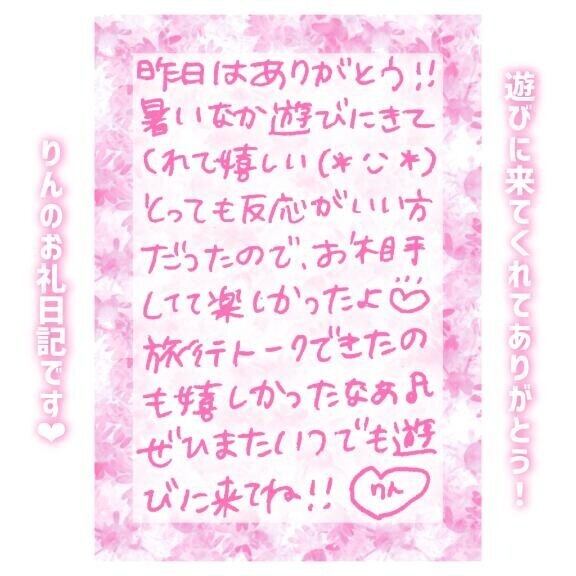 遊びに来てくれてありがとう！
昨日はありがとう!!
暑いなか遊びにきて
くれて嬉しい(*◡*)
とっても反応がいい方
だったので、お相手
してて楽しかったよ♡
旅行トークできたの
も嬉しかったなぁ♫
ぜひまたいつでも遊
びに来てね!! りん
りんのお礼日記です❤